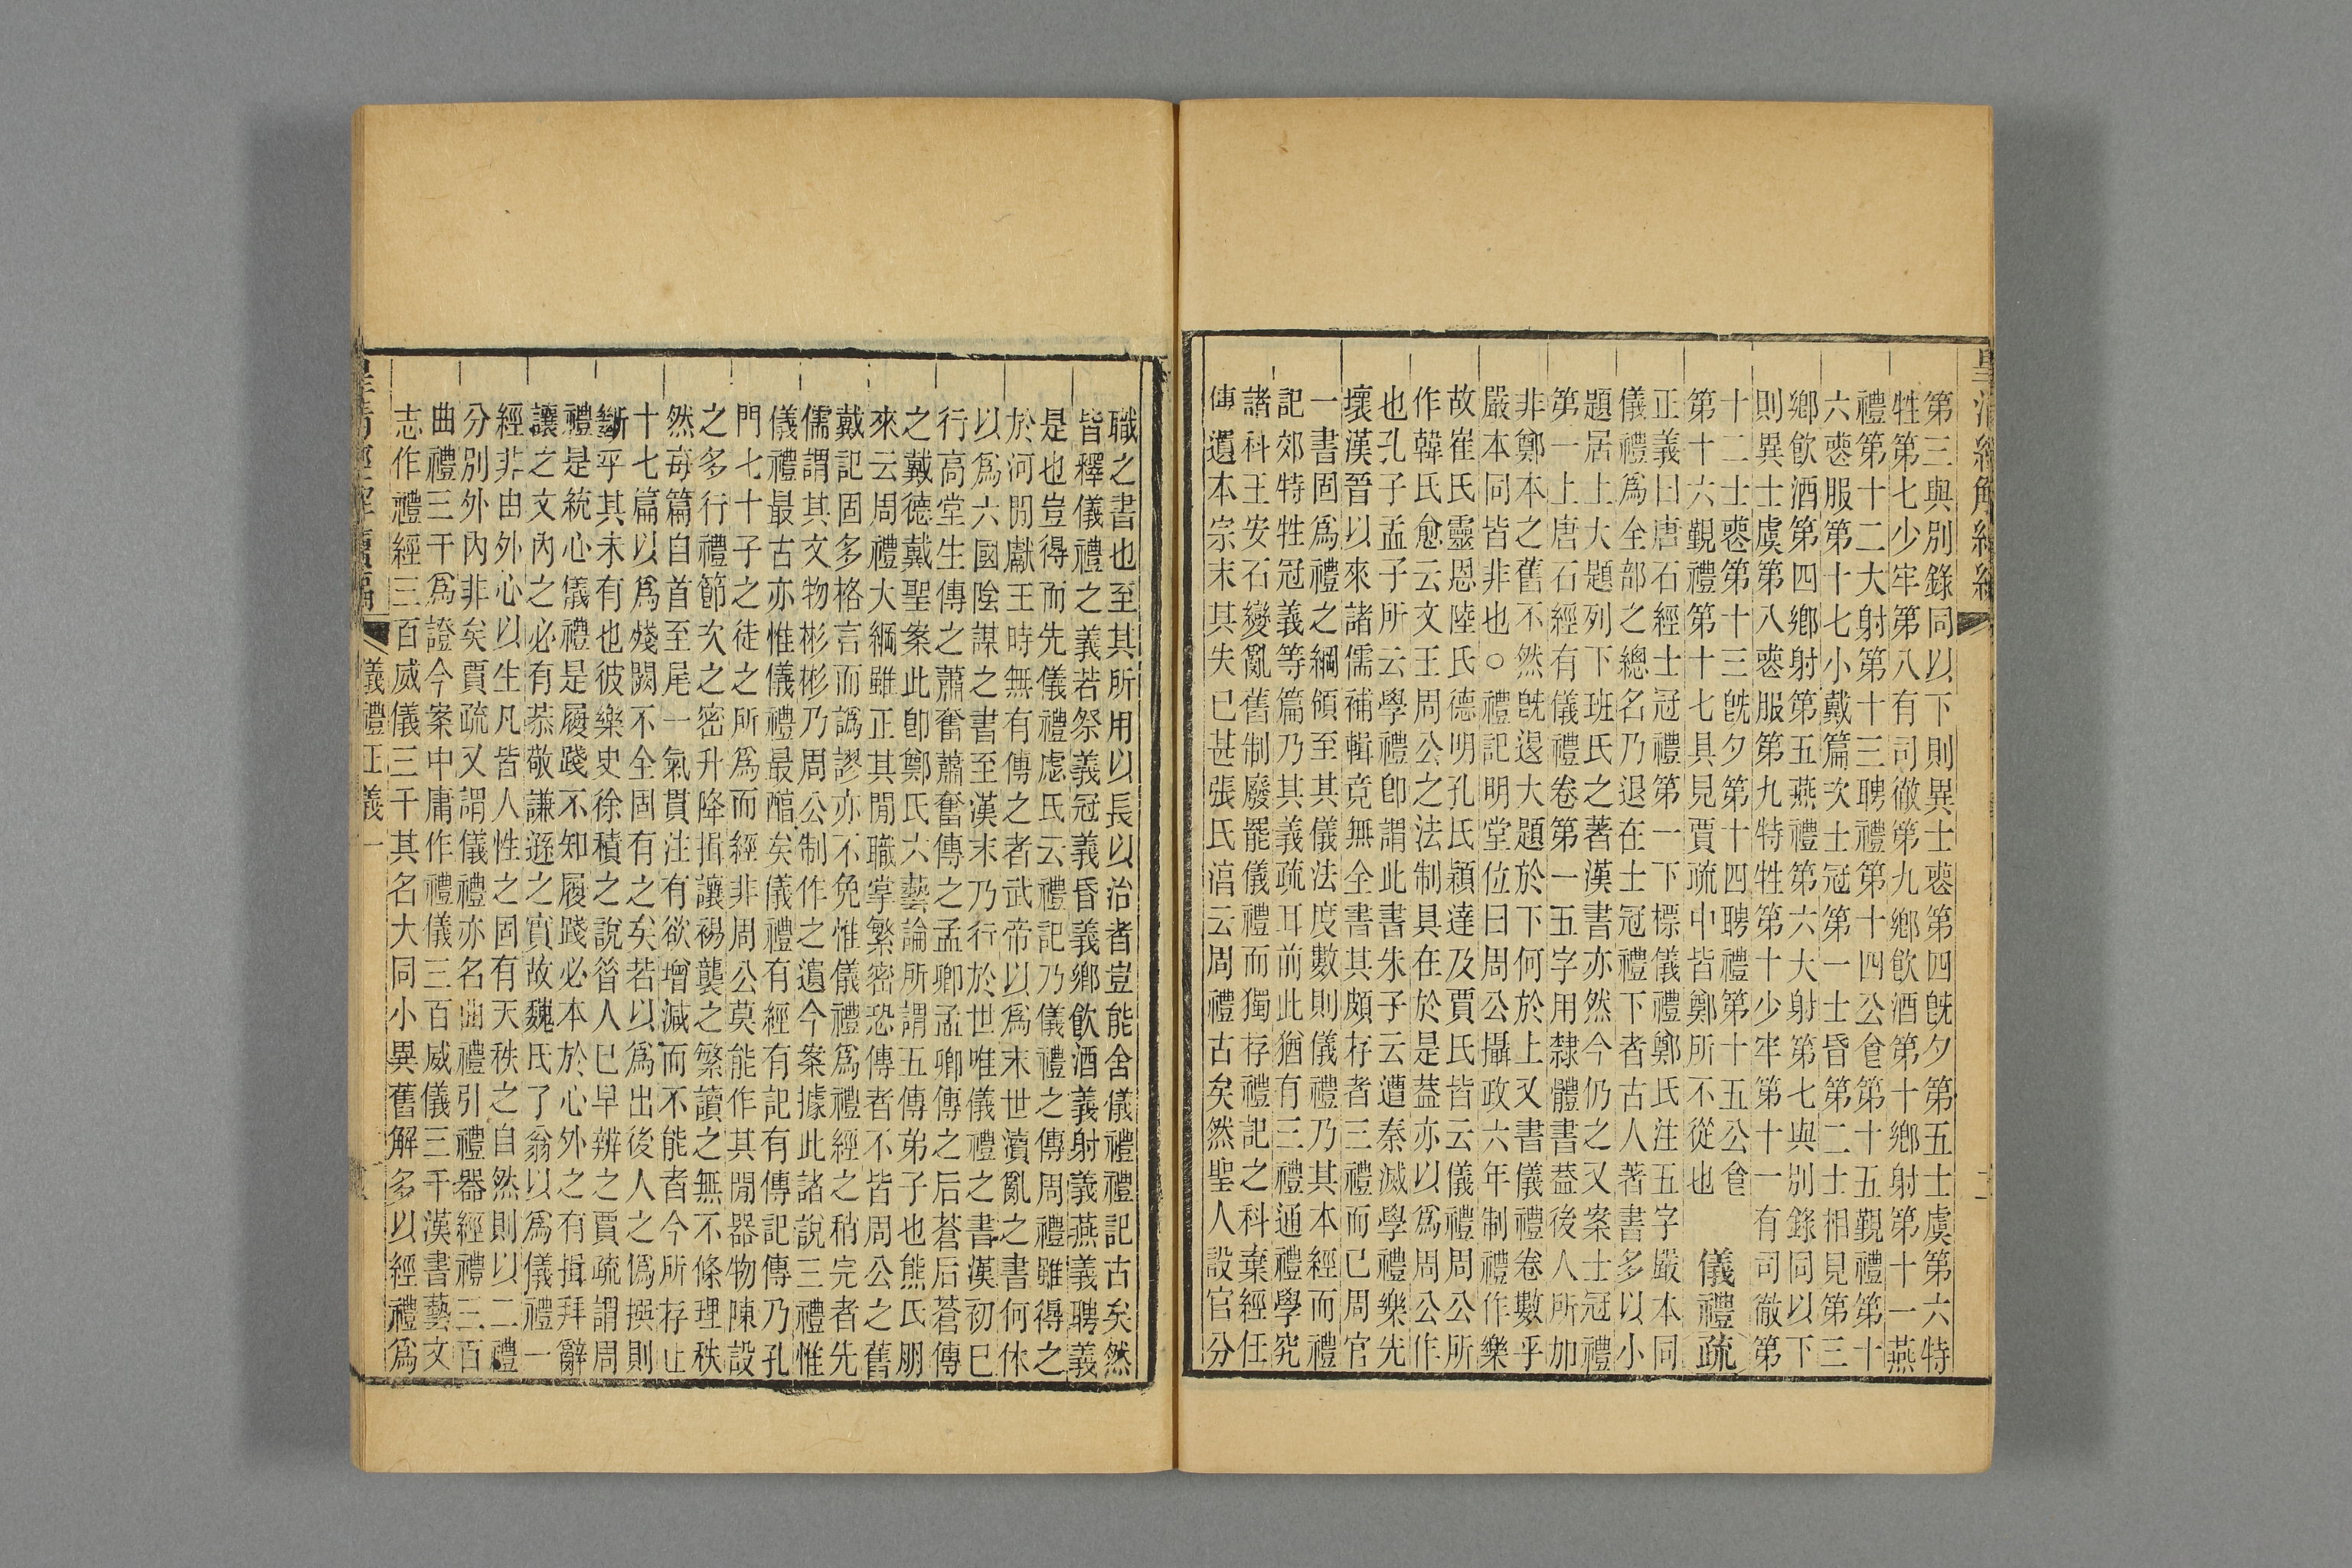 皇清經解續編
第三與別錄同以下則異士喪第四旣夕第五士虞第六特
牲第七少牢第八有司徹第九鄉飮酒第十鄉射第十一燕
禮第十二大射第十三聘禮第十四公食第十五覲禮第十
六喪服第十七小戴篇次士冠第一士昏第二士相見第三
鄉飮酒第四鄉射第五燕禮第六大射第七與別錄同以下
則異士虞第八喪服第九特牲第十少牢第十一有司徹第
十二士喪第十三旣夕第十四聘禮第十五公食
第十六覲禮第十七具見賈疏中皆鄭所不從也
儀禮疏
正義曰唐石經士冠禮第一下標儀禮鄭氏注五字嚴本同
儀禮爲全部之總名乃退在士冠禮下者古人著書多以小
題居上大題列下班氏之著漢書亦然今仍之又案士冠禮
第一上唐石經有儀禮卷第一五字用隸體書葢後人所加
非鄭本之舊不然旣退大題於下何於上又書儀禮卷數乎
嚴本同皆非也○禮記明堂位曰周公攝政六年制禮作樂
故崔氏靈恩陸氏德明孔氏穎達及賈氏皆云儀禮周公所
作韓氏愈云文王周公之法制具在於是葢亦以爲周公作
也孔子孟子所云學禮卽謂此書朱子云遭秦滅學禮樂先
壞漢晉以來諸儒補輯竟無全書其頗存者三禮而已周官
一書固爲禮之綱領至其儀法度數則儀禮乃其本經而禮
記郊特牲冠義等篇乃其義疏耳前此猶有三禮通禮學究
諸科王安石變亂舊制廢罷儀禮而獨存禮記之科棄經任
傳遺本宗末其失已甚張氏淳云周禮古矣然聖人設官分
職之書也至其所用以長以治者豈能舍儀禮禮記古矣然
皆釋儀禮之義若祭義冠義昏義鄉飮酒義射義燕義聘義
是也豈得而先儀禮慮氏云禮記乃儀禮之傳周禮雖得之
於河閒獻王時無有傳之者武帝以爲末世瀆亂之書何休
以爲六國陰謀之書至漢末乃行於世唯儀禮之書漢初已
行高堂生傳之蕭奮蕭奮傳之孟卿孟卿傳之后蒼后蒼傳
之戴德戴聖案此卽鄭氏六藝論所謂五傳弟子也熊氏朋
來云周禮大綱雖正其閒職掌繁密恐傳者不皆周公之舊
戴記固多格言而譌謬亦不免惟儀禮爲禮經之稍完者先
儒謂其文物彬彬乃周公制作之遺今案據此諸說三禮惟
儀禮最古亦惟儀禮最醇矣儀禮有經有記有傳記傳乃孔
門七十子之徒之所爲而經非周公莫能作其閒器物陳設
之多行禮節次之密升降揖讓裼襲之繁讀之無不條理秩
然每篇自首至尾一氣貫注有欲增減而不能者今所存止
十七篇以爲殘闕不全固有之矣若以爲出後人之僞撰則
斷乎其未有也彼樂史徐積之說昝人已早辨之賈疏謂周
禮是統心儀禮是履踐不知履踐必本於心外之有揖拜辭
讓之文內之必有恭敬謙遜之實故魏氏了翁以爲儀禮一
經非由外心以生凡皆人性之固有天秩之自然則以二禮
分別外內非矣賈疏又謂儀禮亦名曲禮引禮器經禮三百
曲禮三千爲證今案中庸作禮儀三百威儀三千漢書藝文
志作禮經三百威儀三千其名大同小異舊解多以經禮爲
皇清經解續編 儀禮正義一